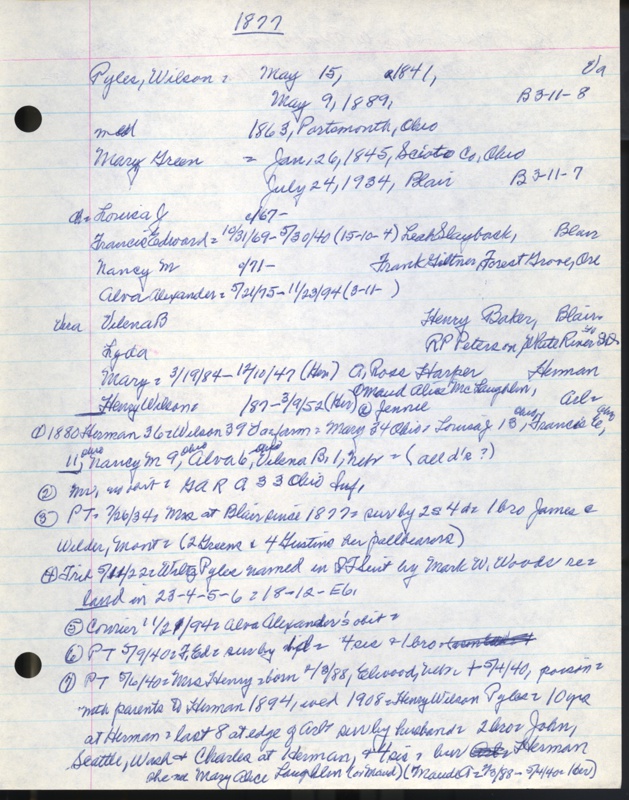 1877
Pyles, Wilson = May 15, 1841, Va
May 9, 1889, B3-11-8
md 1863, Portsmouth, Ohio
Mary Green = Jan, 26, 1845, Scioto Co, Ohio
July 24, 1934, Blair B 3-11-7
ch = Louisa J c/67-
Francis Edward = 10/31/69 - 5/30/40 (15-10-4) Leah Slayback, Blair
Nancy M c/71- Frank Giltner, Forest Grove, Ore
Alva Alexander = 5/21/75 - 11/23/94 (3-11- )
Vera Velena B Henry Baker, Blair
Lyda RP Peterson, Platte River
Mary = 3/19/84 - 12/10/47 (Her) A, Ross Harper Herman
Henry Wilson = /87 - 3/9/52 (Her) ① Maud Alice McLaughlin, ② Jennie
① 1880 Herman 36 = Wilson 39 Va farm = Mary 34 Ohio = Louisa J 13 Ohio, Francis E,
11, Ohio Nancy M 9, Ohio Alva 6, Ohio Velena B, 1, Nebr = (all d's?)
② Mr, = GAR A 33 Ohio Inf,
③ PT = 7/26/34 = Mrs at Blair since 1877 = surv by 2s 4d = 1 bro James @
Wilder, Mont = (2 Greens & 4 Gustins her pallbearers)
④ Trib Pyles named in suit by Mark W, Woods re =
land in 23-4-5-6 = 18-12-E6,
⑤ Courier 11/29/94 = Alva Alexander's obit =
⑥ PT 5/9/40 = F, Ed = surv by 4 sis & 1 bro
⑦ PT 5/6/40 = Mrs Henry = born 2/3/88, Elwood, Nebr = + 5/4/40, poison =
with parents to Herman 1894, wed 1908 = Henry Wilson Pyles = 10 yrs
at Herman = last 8 at edge of Arl = surv by husband = 2 bro = John,
Seattle, Wash & Charles at Herman, & 4 sis = bur Herman
she = Mary Alice Laughlin (or Maud) (Maude A = 2/3/88 - 5/4/40 = Her)